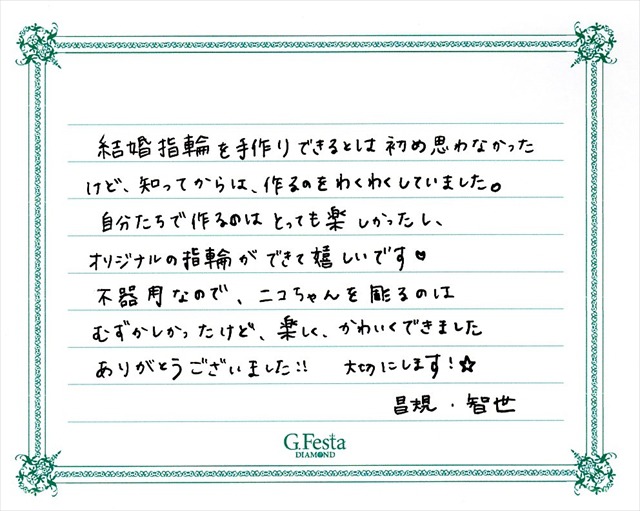 結婚指輪を手作りできるとは初め思わなかった
けど、知ってからは、作るのをわくわくしていました。
自分たちで作るのはとっても楽しかったし、
オリジナルの指輪ができて嬉しいです♥
不器用なので、ニコちゃんを彫るのは
むずかしかったけど、楽しく、かわいくできました
ありがとうございました!! 大切にします!☆
昌規・智世
G.Festa
DIAMOND